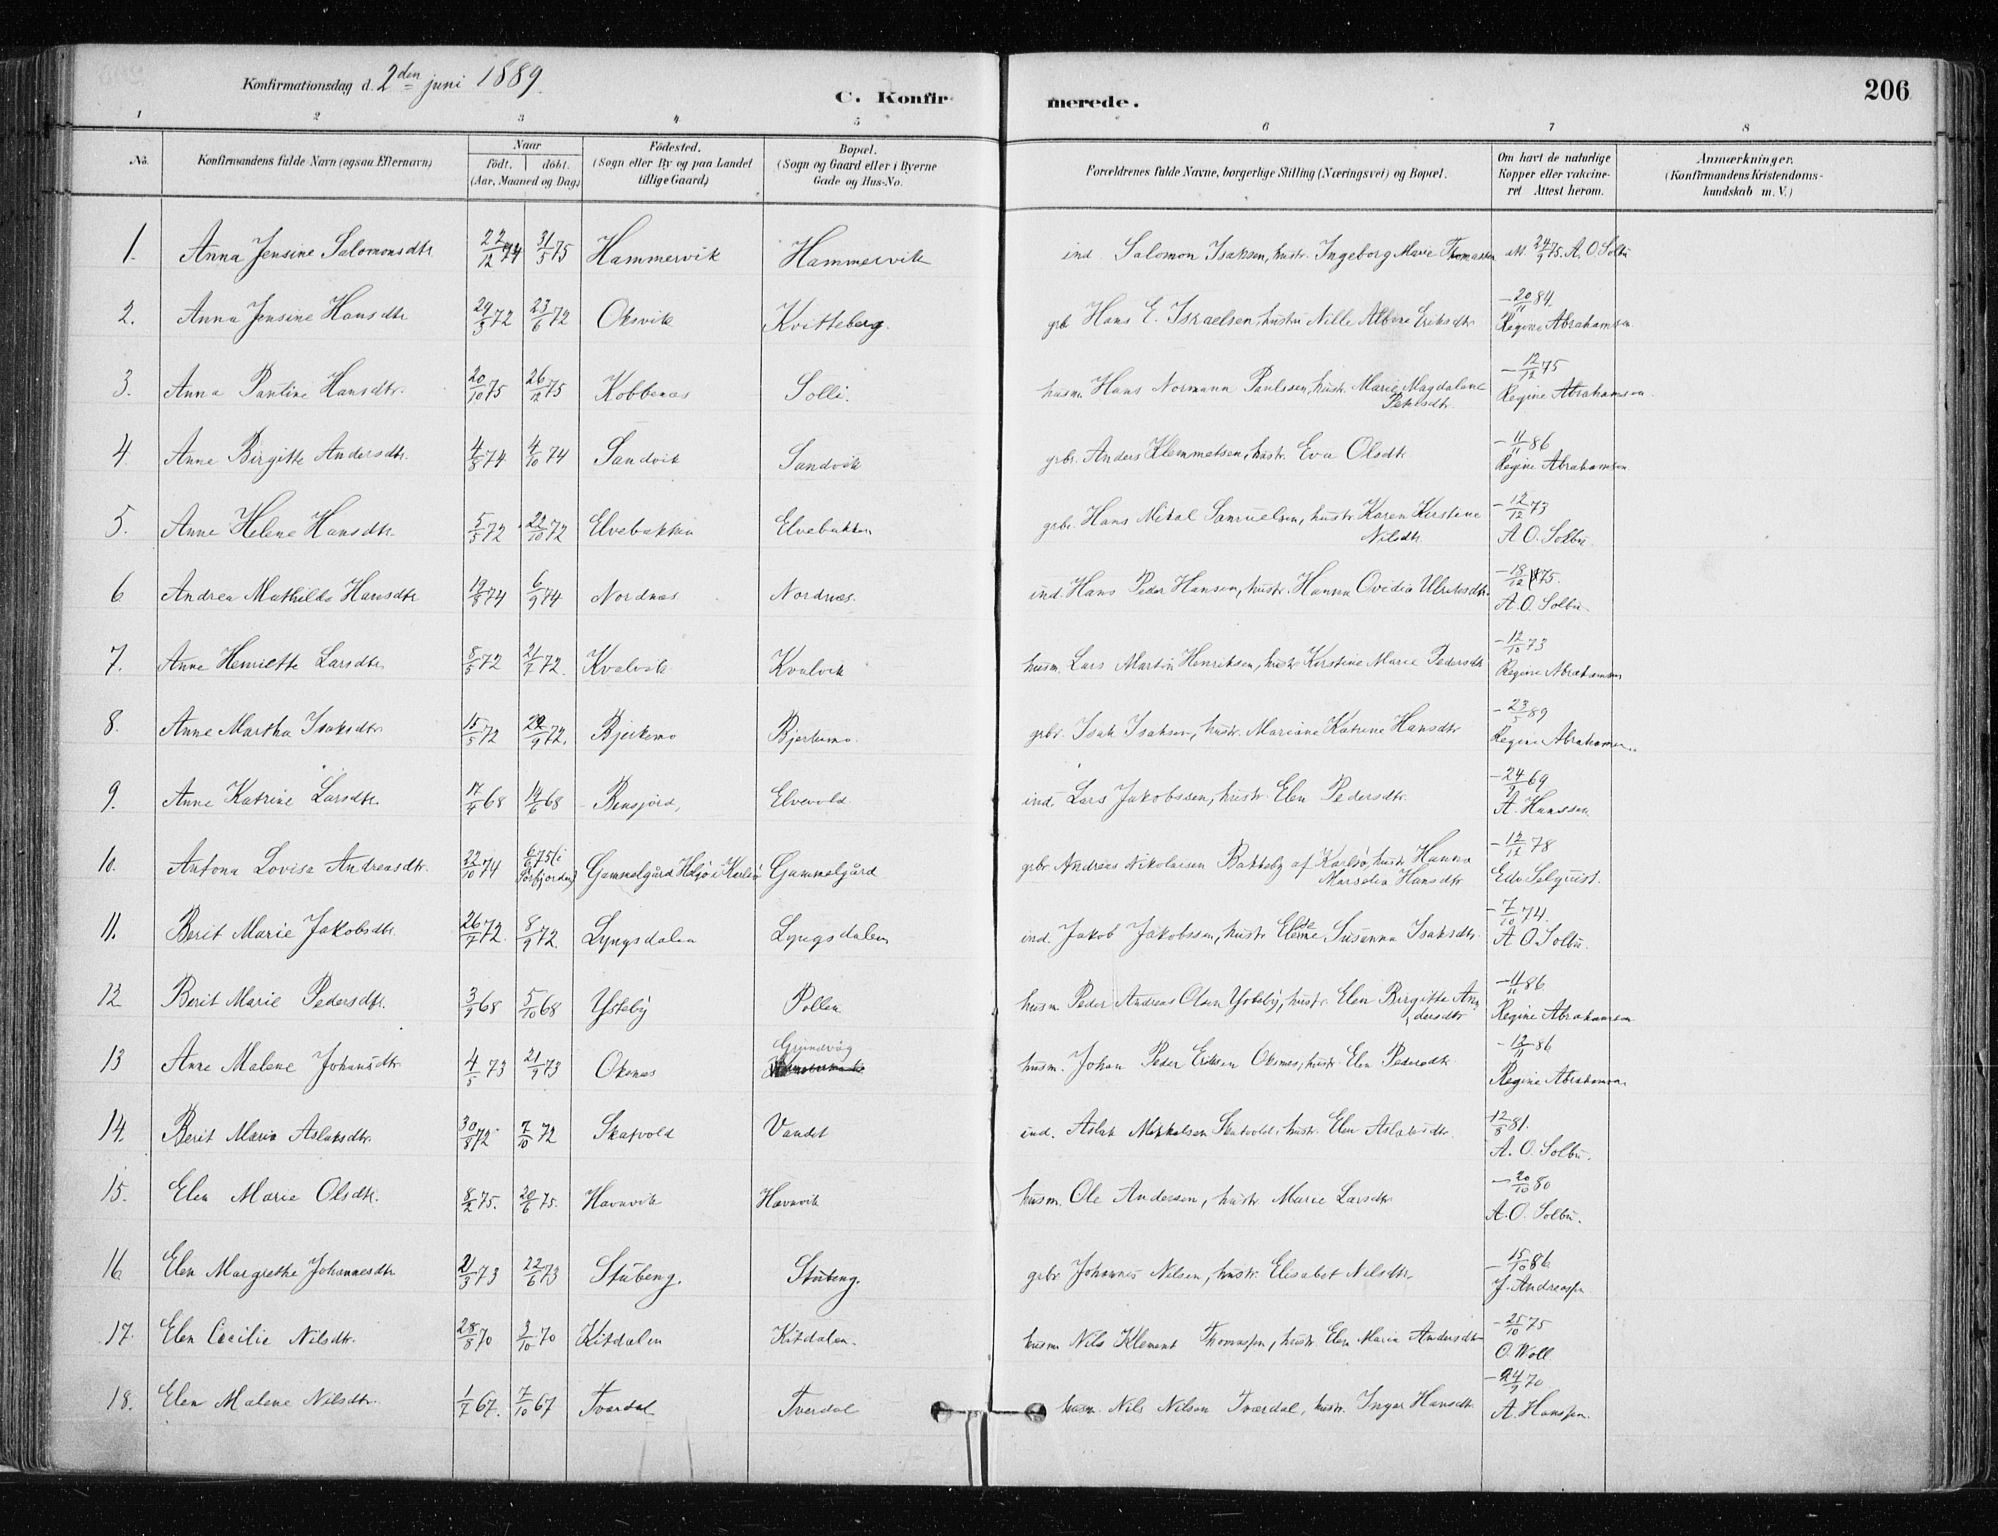 Konfirmationsdag d. 2den juni 1889.
C. Konfirmerede.
206
1 2 3 4 5 6 7 8
No. Konfirmandens fulde Navn (ogsaa Efternavn) Naar födt. döbt. (Aar, Maaned og Dag) Födested. (Sogn eller By og paa Landet tillige Gaard) Bopæl. (Sogn og Gaard eller i Byerne Gade og Hus-No. Forældrenes fulde Navne, borgerlige Stilling (Næringsvei) og Bopæl. Om havt de naturlige Kopper eller vakcineret Attest herom. Anmærkninger. (Konfirmandens Kristendomskundskab m. V.)
1. Anna Jensine Salomonsdtr 22/12 74 31/5 75 Hammervik Hammervik ind. Salomon Isaksen, hustr. Ingeborg Marie Thomasen att. 24/9 75. A. O. Solbu
2. Anna Jensine Hansdtr 29/3 72 23/6 72 Oksvik Kvitteberg. gbr. Hans E. Israelsen, hustru Nille Albine Eriksdtr - 20/11 84. Regine Abrahamsen.
3. Anna Pauline Hansdtr. 20/10 75 26/12 75 Kobbenes Solli. husm. Hans Normann Paulssen, hustr. Marie Magdalene Petersdtr. - 12/12 75 Regine Abrahamsen.
4. Anne Birgitte Andersdtr. 4/8 74 4/10 74 Sandvik Sandvik gbr. Anders Klemmetsen, hustr. Eva Olsdtr. - 11/11 86 Regine Abrahamsen
5. Anne Helene Hansdtr. 5/5 72 22/10 72 Elvebakken Elvebakken gbr. Hans Mikal Samuelsen, hustr. Karen Kirstine Nilsdtr. - 12/12 73 A. O. Solbu.
6. Andrea Mathilde Hansdtr 19/8 74 6/9 74 Nordnæs Nordnæs. ind. Hans Peder Hansen, hustr. Hanna Ovidia Ulriksdtr. - 18/12 75. A. O. Solbu.
7. Anne Henriette Larsdtr. 8/5 72 21/7 72. Kvalvik Kvalvik husm. Lars Martin Henriksen, hustr. Kirstine Marie Pedersdtr - 12/10 73 Regine Abrahamsen
8. Anne Martha Isaksdtr 15/5 72 22/9 72. Bjerkemo Bjerkemo. gbr. Isak Isaksen, hustr. Mariane Katrine Hansdtr - 23/5 89 Regine Abrahamsen.
9. Anne Katrine Larsdtr. 17/4 68 14/6 68 Bensjord, Elvevold. ind. Lars Jakobssen, hustr. Elen Pedersdtr. - 24/9 69 A. Hanssen
10. Antona Lovise Andreasdtr. 22/10 74 6/6 75 (i Sørfjorden) Gammelgård Helgø i Karlsø Gammelgård gbr. Andreas Nikolaisen Bakkeby af Karlsø, hustr. Hanna Marselia Hansdtr - 12/12 78 Edv Selquist.
11. Berit Marie Jakobsdtr. 26/7 72. 8/9 72. Lyngsdalen Lyngsdalen ind. Jakob Jakobssen, hustr. Elene Susanna Isaksdtr. - 7/10 74. A. O. Solbu.
12 Berit Marie Pedersdtr. 3/9 68 5/10 68 Ysteby Pollen husm. Peder Andreas Olsen Ysteby, hustr. Elen Birgitte Andersdtr - 11/11 86 Regine Abrahamsen
13 Anne Malene Johansdtr 4/5 73 21/9 73 Oksnes Grundvåg husm. Johan Peder Eriksen Oksnes, hustr. Elen Pedersdtr - 12/11 86 Regine Abrahamsen.
14. Berit Maria Aslaksdtr. 30/8 72 7/10 72 Skatvold Vandet ind. Aslak Mikkelsen Skatvold, hustr. Elen Aslaksdtr. - 12/8 81. A. O. Solbu.
15. Elen Marie Olsdtr. 8/2 75. 20/6 75. Havnvik Havnvik husm. Ole Andersen, hustr. Marie Larsdtr - 20/10 80 A. O. Solbu.
16 Elen Margrethe Johannesdtr 21/3 73 22/6 73 Stubeng. Stubeng. gbr. Johannes Nilsen, hustr. Elisabet Nilsdtr. - 15/10 86 J. Andreassen
17. Elen Cecilie Nilsdtr. 28/8 70 3/10 70 Kitdalen Kitdalen. husm Nils Klement Thomassen, hustr. Elen Maria Andersdtr - 25/10 75 O. Woll
18. Elen Malene Nilsdtr. 1/7 67. 7/10 67 Tverdal Tverdal husm. Nils Nilsen Tverdal, hustr. Inger Hansdtr - 24/9 70 A. Hanssen.